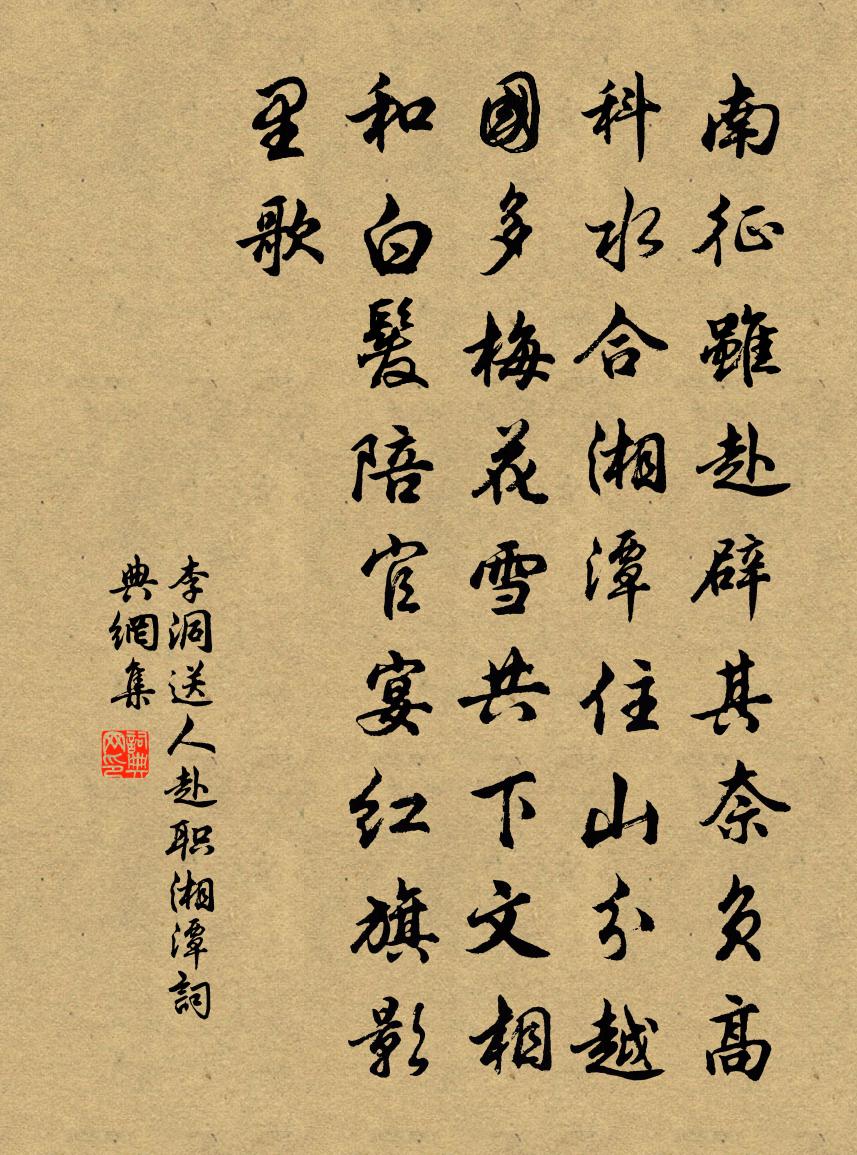 南征雖赴辟其奈負高
科水合湘潭住山分越
國多梅花雪共下文相
和白髮陪官宴红旗影
里歌
李洞送人赴职湘潭詞
典網集
詞典网印